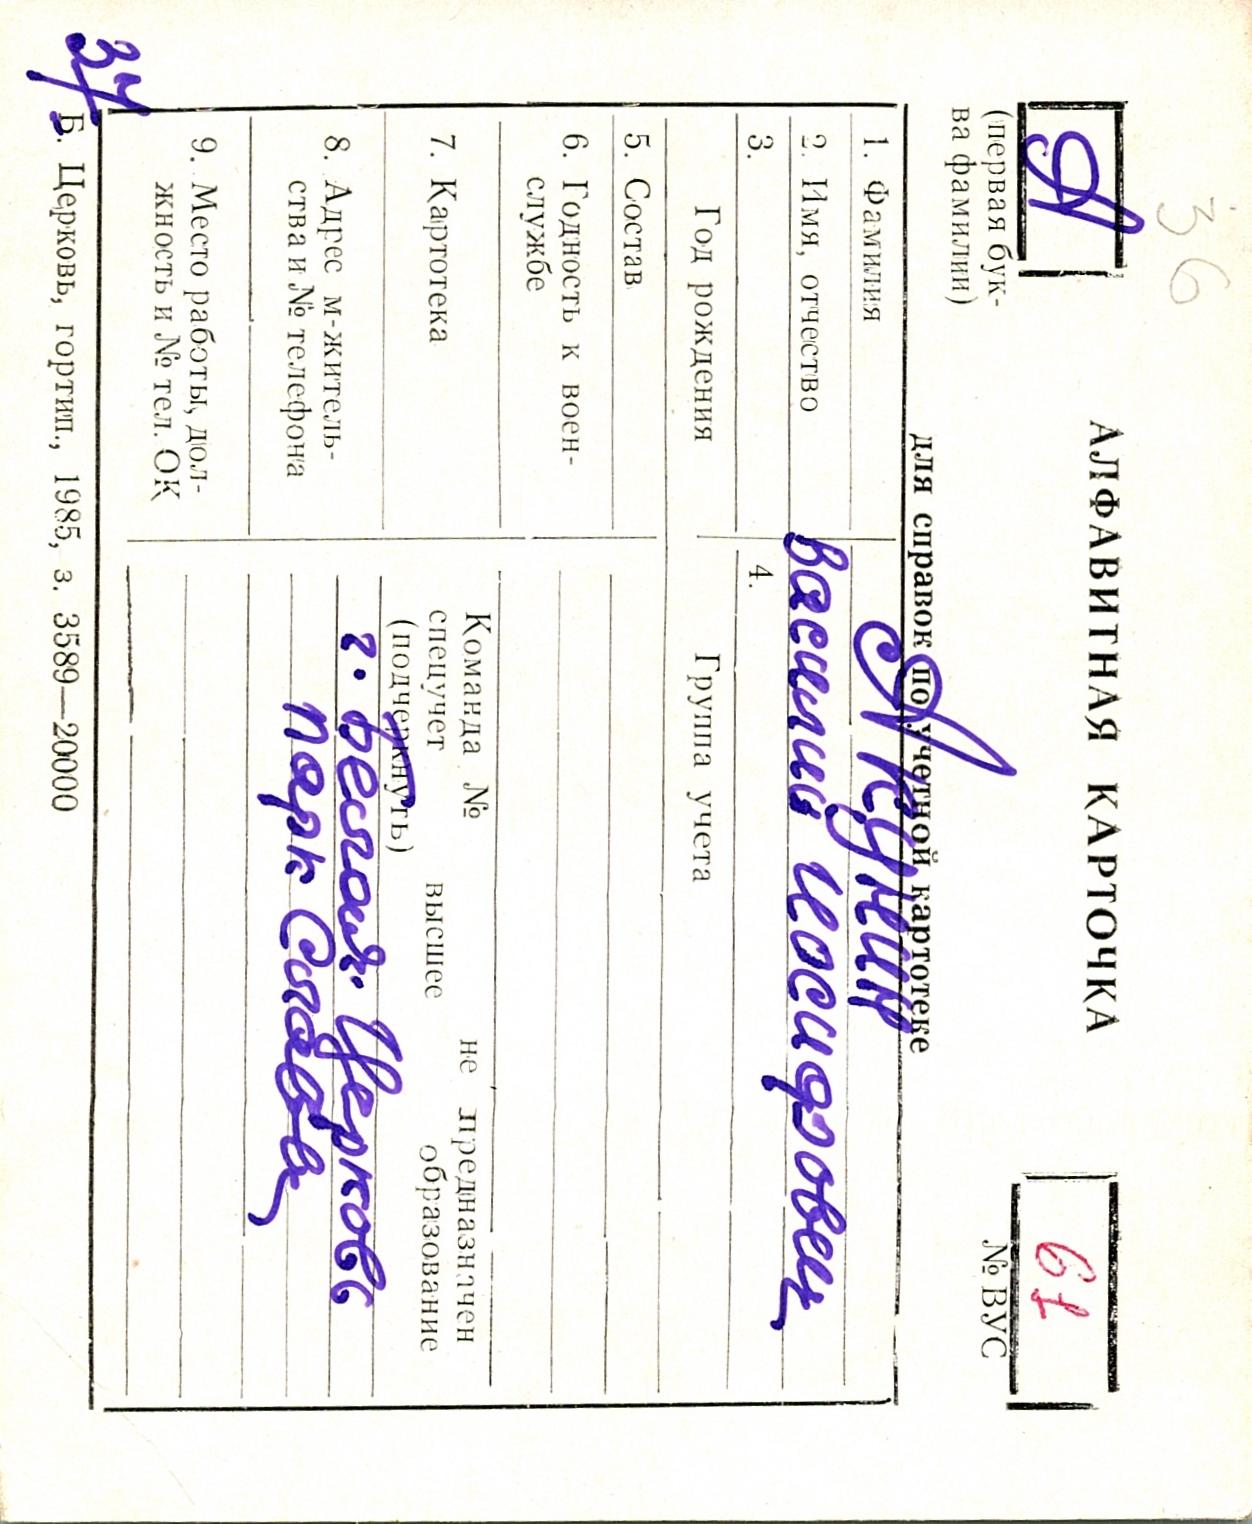 36
А
(первая бук-
ва фамилии)
АЛФАВИТНАЯ КАРТОЧКА
для справок по учетной картотеке
61
№ ВУС
1. Фамилия
Акунин
2. Имя, отчество
Василий Иосифович
3.
Год рождения
4.
Группа учета
5. Состав
6. Годность к воен-
службе
7. Картотека
Команда № не предназначен
спецучет высшее образование
(подчеркнуть)
8. Адрес м-житель-
ства и № телефона
г. Белая Церковь
парк Слава
9. Место работы, дол-
жность и № тел. ОК
Б. Церковь, гортип., 1985, з. 3589—20000